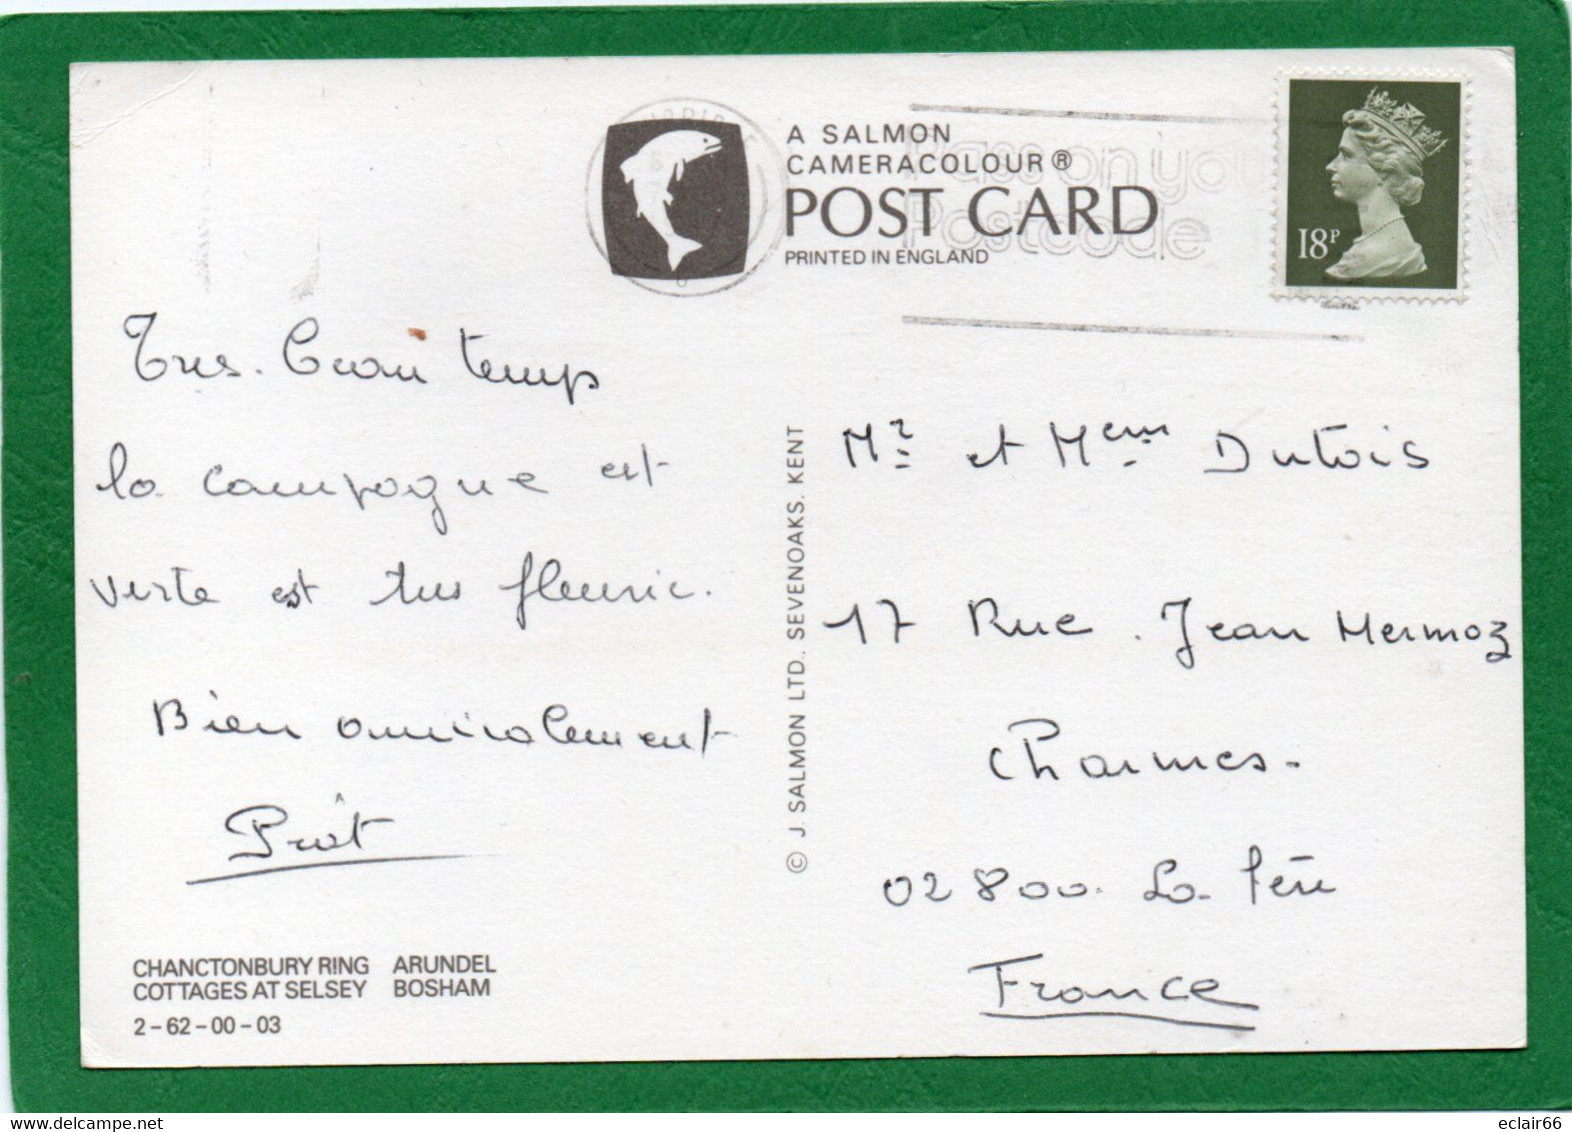 A SALMON
CAMERACOLOUR®
POST CARD
PRINTED IN ENGLAND
Pass on you
Postcode
18P
Très beau temps
la campagne est
verte est très fleurie.
Bien amicalement
© J. SALMON LTD., SEVENOAKS, KENT
Mr et Mem Dutois
17 Rue Jean Mermoz
Charmes.
02800. La fère
France
CHANCTONBURY RING ARUNDEL
COTTAGES AT SELSEY BOSHAM
2-62-00-03
www.delcampe.net
eclair66